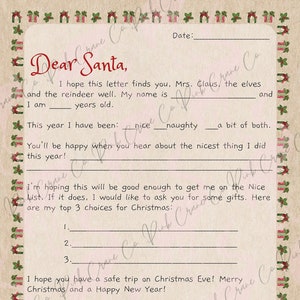 Date:
Dear Santa,
I hope this letter finds you, Mrs. Claus, the elves
and the reindeer well. My name is ____________ and
I am ____ years old.
This year I have been: __nice __naughty __a bit of both.
You'll be happy when you hear about the nicest thing I did
this year! ____________
I'm hoping this will be good enough to get me on the Nice
List. If it does, I would like to ask you for some gifts. Here
are my top 3 choices for Christmas:
1.____________
2.____________
3.____________
I hope you have a safe trip on Christmas Eve! Merry
Christmas and a Happy New Year!